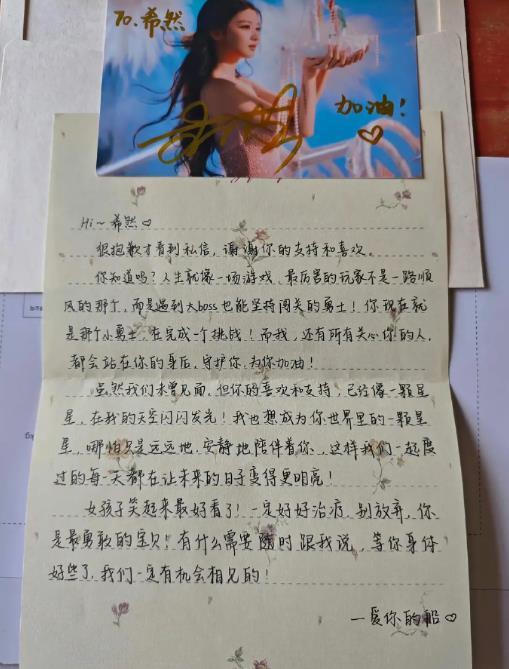 To.希然
加油！♡
Hi～希然♡
很抱歉才看到私信，谢谢你的支持和喜欢。
你知道吗？人生就像一场游戏，最厉害的玩家不是一路顺
风的那个，而是遇到大boss也能坚持闯关的勇士！你现在就
是那个小勇士，在完成一个挑战！而我，还有所有关心你的人，
都会站在你的身后，守护你，为你加油！
虽然我们未曾见面，但你的喜欢和支持，已经像一颗星
星，在我的天空闪闪发光！我也想成为你世界里的一颗星
星，哪怕只是远远地、安静地陪伴着你，这样我们一起度
过的每一天都在让未来的日子变得更明亮！
女孩子笑起来最好看了！一定好好治疗，别放弃，你
是最勇敢的宝贝！有什么需要随时跟我说，等你身体
好些了，我们一定有机会相见的！
—爱你的船♡